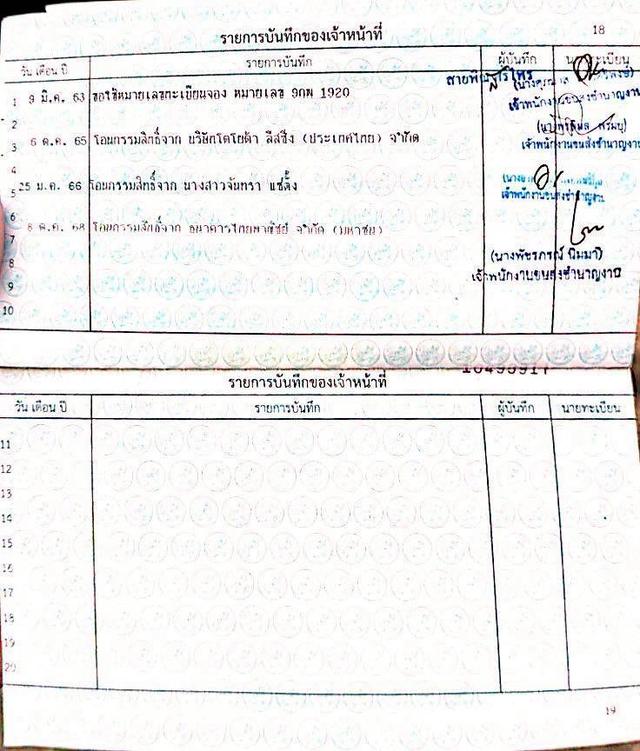 รายการบันทึกของเจ้าหน้าที่ 18
วัน เดือน ปี รายการบันทึก ผู้บันทึก
1 9 มี.ค. 63 ขอใช้หมายเลขทะเบียนจอง หมายเลข 9กพ 1920
เจ้าพนักงานขนส่งชำนาญงาน
2
3 6 ต.ค. 65 โอนกรรมสิทธิ์จาก บริษัทโตโยต้า ลีสซิ่ง (ประเทศไทย) จำกัด
เจ้าพนักงานขนส่งชำนาญงาน
4
5 25 ม.ค. 66 โอนกรรมสิทธิ์จาก นางสาวจันทรา แซ่ตั้ง
เจ้าพนักงานขนส่งชำนาญงาน
6
7 8 ต.ค. 68 โอนกรรมสิทธิ์จาก ธนาคารไทยพาณิชย์ จำกัด (มหาชน)
8 (นางพัชรภรณ์ นิมมา)
เจ้าพนักงานขนส่งชำนาญงาน
9
10
รายการบันทึกของเจ้าหน้าที่
วัน เดือน ปี รายการบันทึก ผู้บันทึก นายทะเบียน
11
12
13
14
15
16
17
18
19
20
19